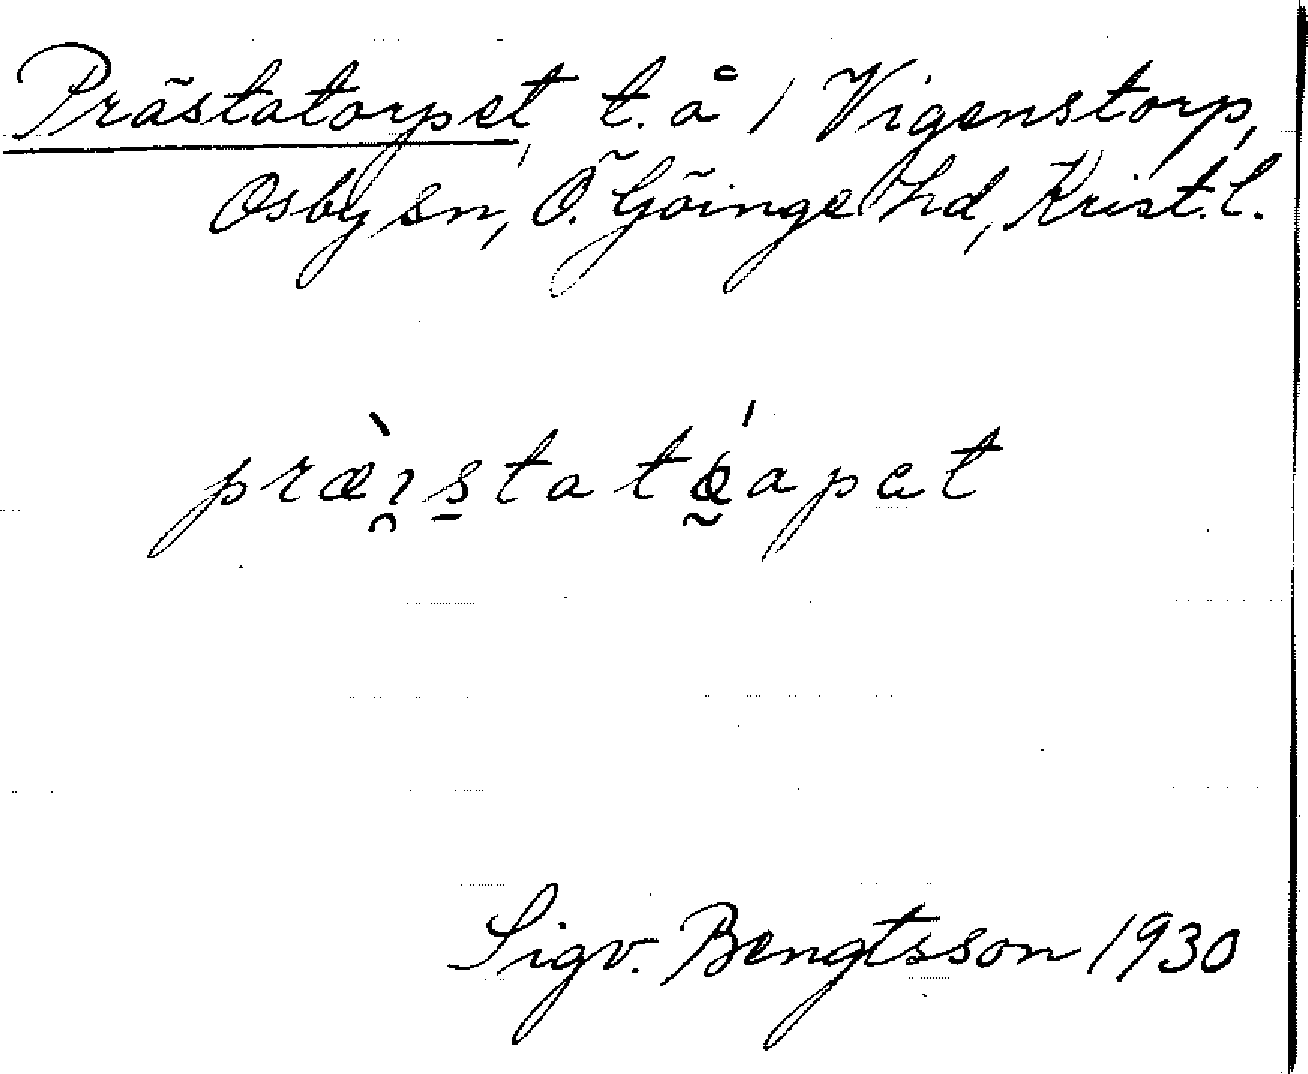 Prästatorpet, t. å 1 Vigenstorp,
Osby sn, Ö. Göinge hd, Krist. l.
præ̀ɿ̯s̠tatǿ̰apet
Sigv. Bengtsson 1930